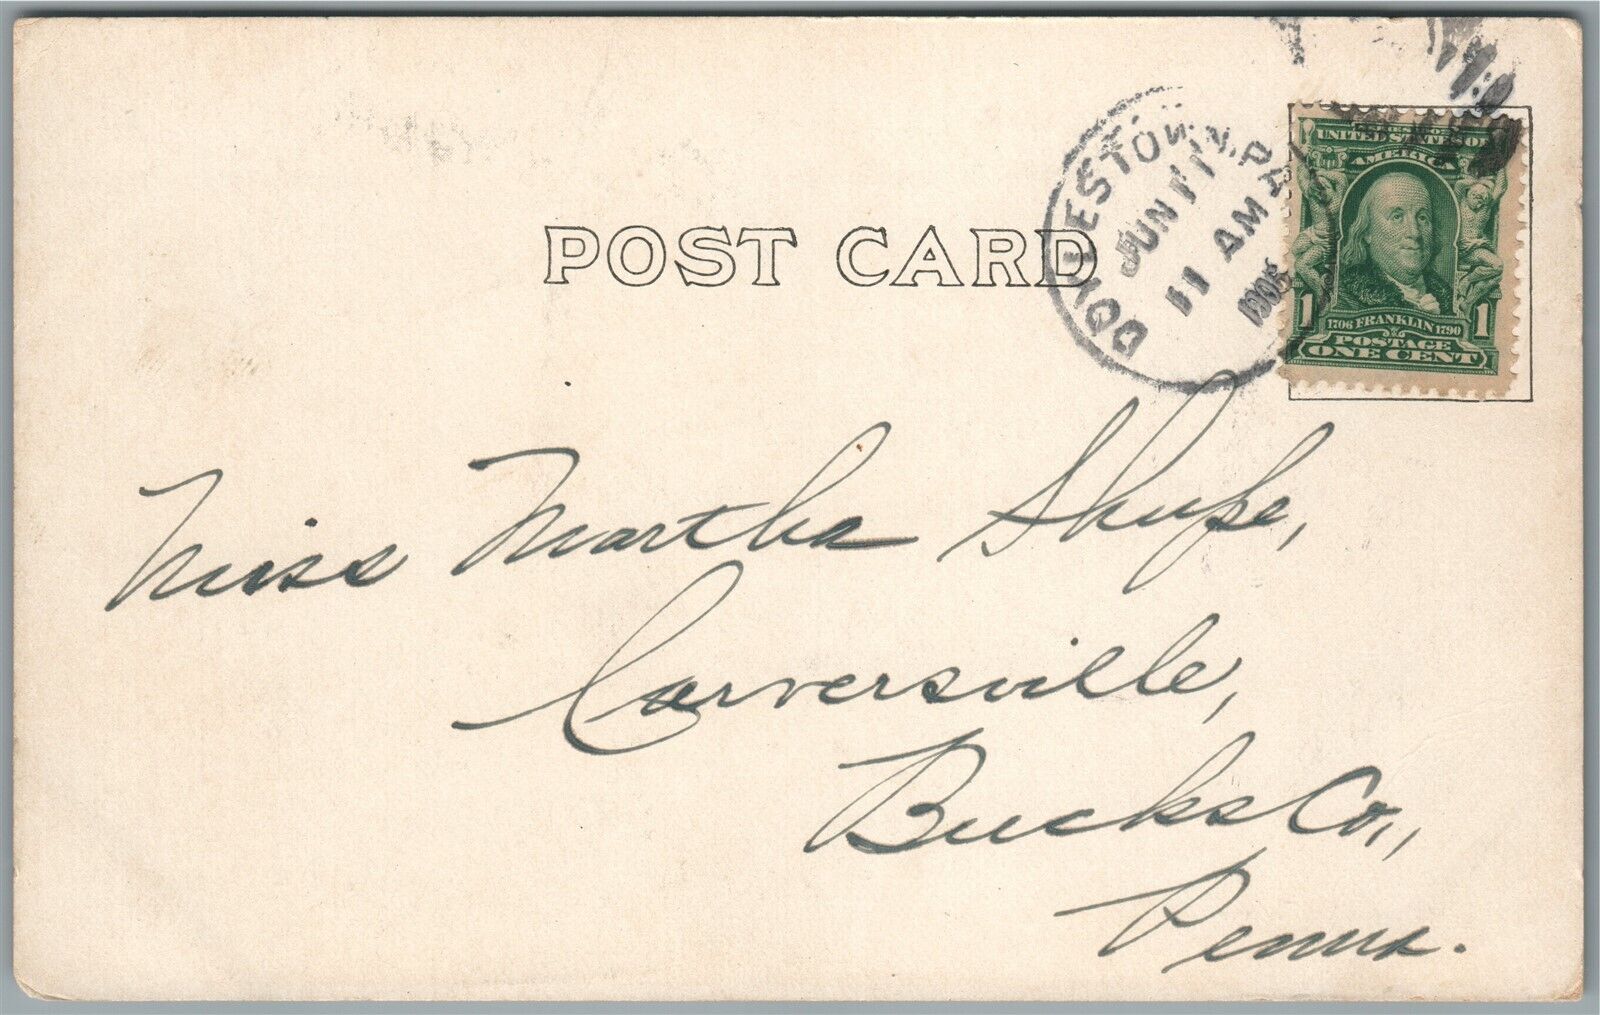 DOYLESTOWN, PA.
JUN 11
11 AM
UNITED STATES OF
AMERICA
1 1
1706 FRANKLIN 1790
POSTAGE
ONE CENT
POST CARD
Miss Martha Shupe,
Carversville,
Bucks Co.,
Penna.